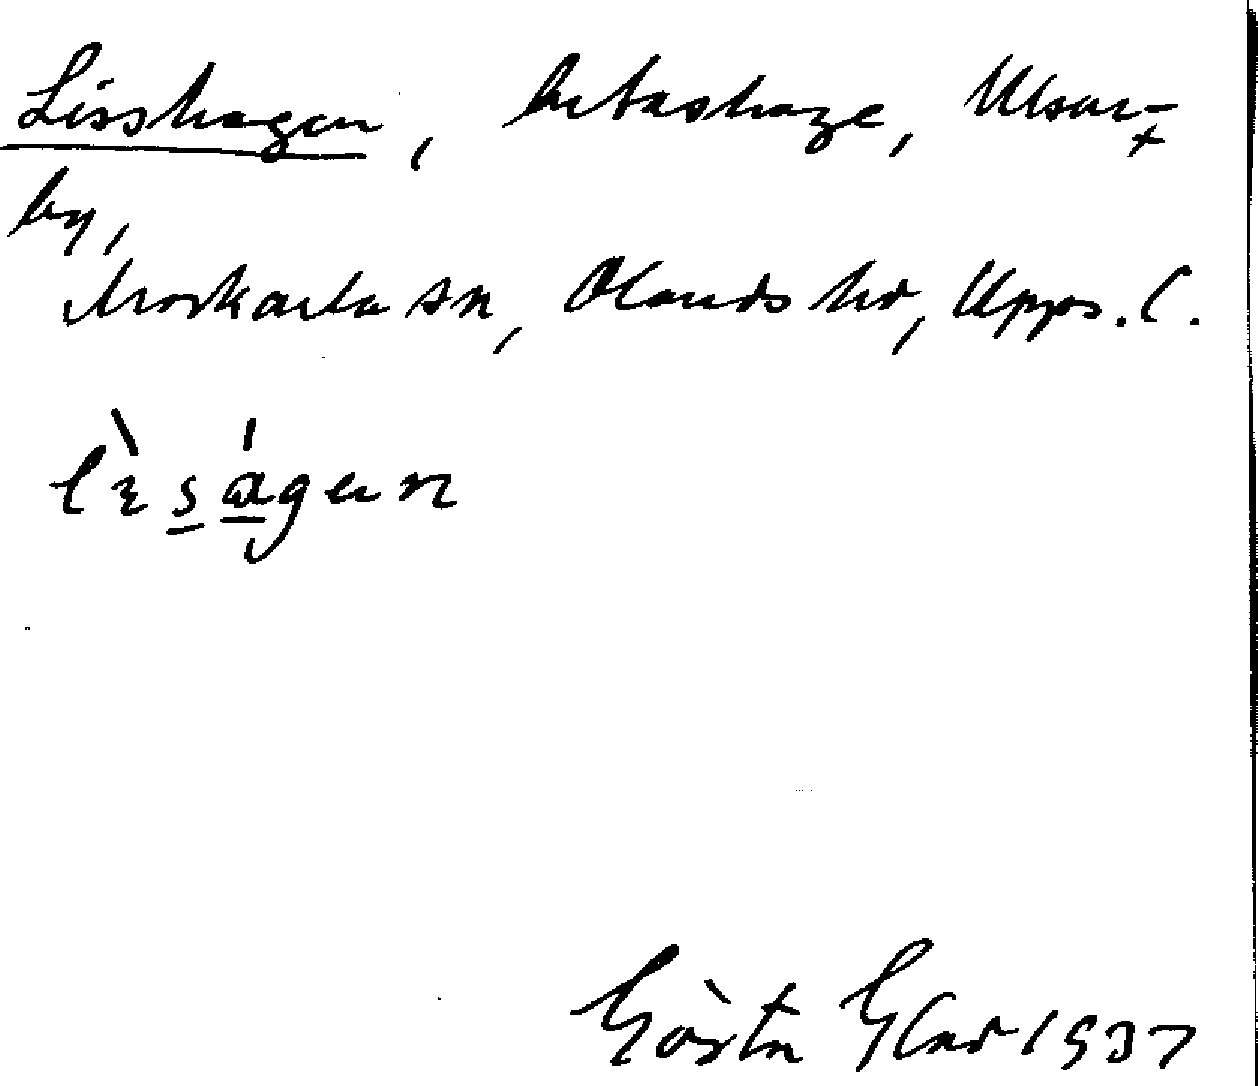 Lisshagen, betashage, Ulvar-
by,
Morkarla sn, Olands hd, Upps. l.
lisagen
Gösta Glad 1937